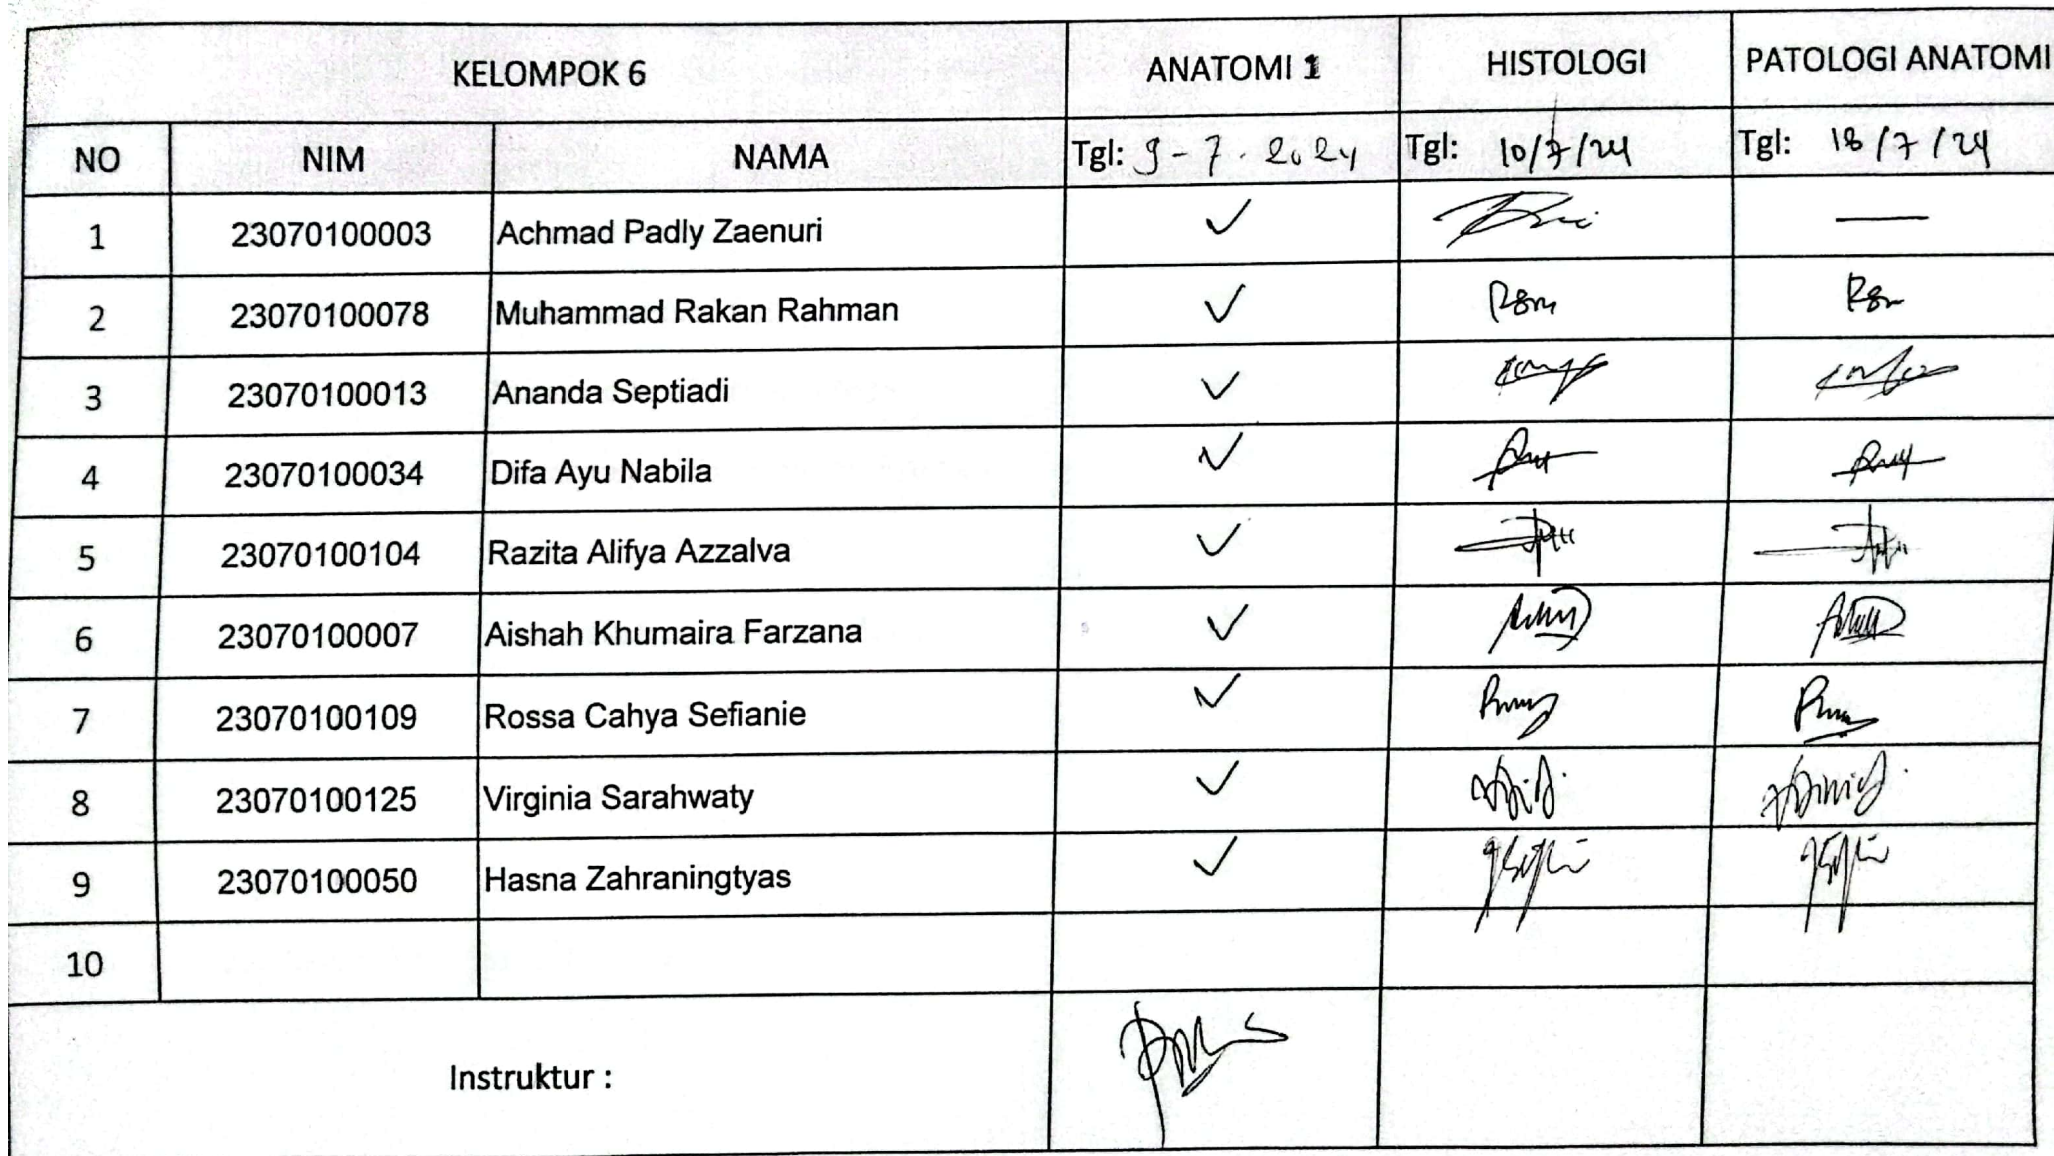 KELOMPOK 6 ANATOMI 1 HISTOLOGI PATOLOGI ANATOMI
NO NIM NAMA Tgl: 9-7-2024 Tgl: 10/7/24 Tgl: 18/7/24
1 23070100003 Achmad Padly Zaenuri ✓ —
2 23070100078 Muhammad Rakan Rahman ✓
3 23070100013 Ananda Septiadi ✓
4 23070100034 Difa Ayu Nabila ✓
5 23070100104 Razita Alifya Azzalva ✓
6 23070100007 Aishah Khumaira Farzana ✓
7 23070100109 Rossa Cahya Sefianie ✓
8 23070100125 Virginia Sarahwaty ✓
9 23070100050 Hasna Zahraningtyas ✓
10
Instruktur :